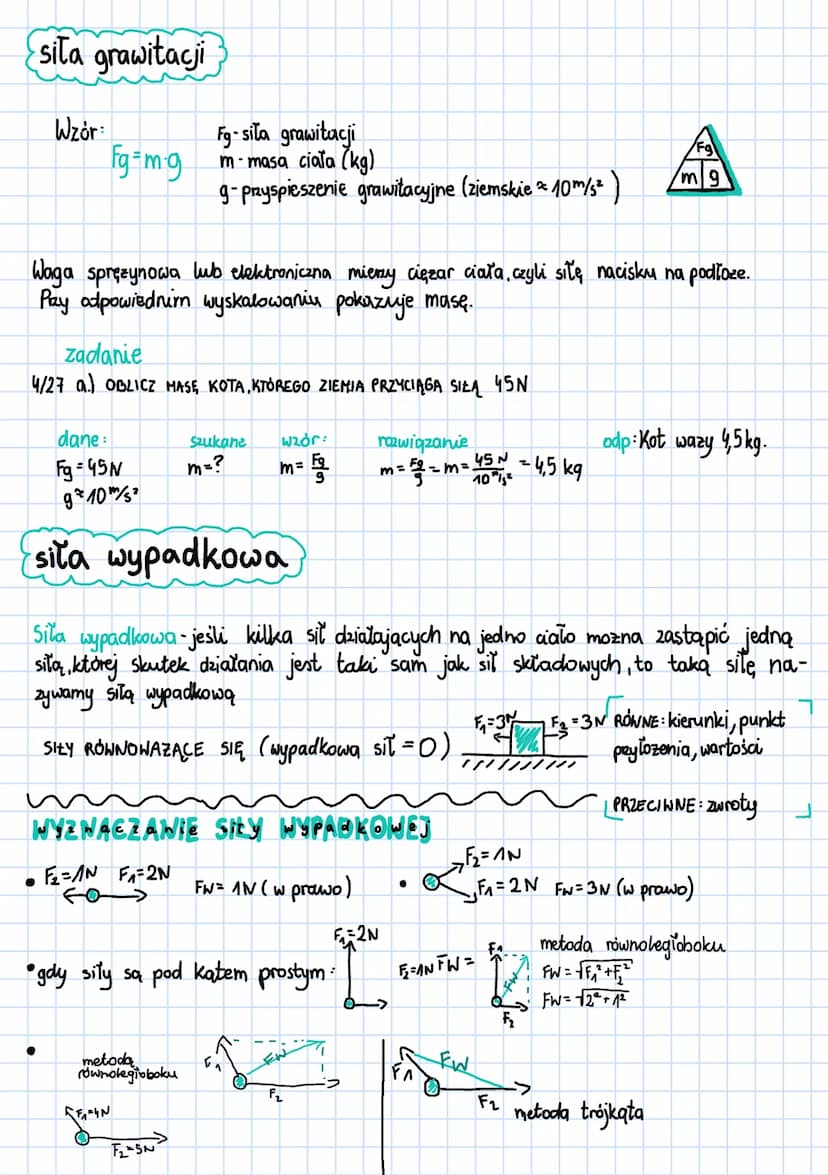 siła grawitacji
Wzór:
Fg=m·g
Fg - siła grawitacji
m - masa ciała (kg)
g - przyspieszenie grawitacyjne (ziemskie ≈ 10 m/s²)
Fg
m g
Waga sprężynowa lub elektroniczna mierzy ciężar ciała, czyli siłę nacisku na podłoże.
Przy odpowiednim wyskalowaniu pokazuje masę.
zadanie
4/27 a.) OBLICZ MASĘ KOTA, KTÓREGO ZIEMIA PRZYCIĄGA SIŁĄ 45N
dane:
Fg = 45N
g ≈ 10 m/s²
szukane
m=?
wzór:
m = Fg/g
rozwiązanie
m = Fg/g - m = 45 N/10 m/s² = 4,5 kg
odp: Kot waży 4,5 kg.
siła wypadkowa
Siła wypadkowa - jeśli kilka sił działających na jedno ciało można zastąpić jedną
siłą, której skutek działania jest taki sam jak sił składowych, to taką siłę na-
zywamy siłą wypadkową
SIŁY RÓWNOWAŻĄCE SIĘ (wypadkowa sił = 0)
F₁=3N
F₂=3N
RÓWNE: kierunki, punkt
przyłożenia, wartości
PRZECIWNE: zwroty
WYZNACZANIE SIŁY WYPADKOWEJ
• F₂=1N F₁=2N
FW= 1N (w prawo)
• F₂=1N
F₁=2N FW=3N (w prawo)
• gdy siły są pod kątem prostym:
F₁=2N
F₂=1N
FW=
F₁
FW
F₂
metoda równoległoboku
FW = √F₁²+F₂²
FW = √2²+1²
•
metoda
równoległoboku
F₁=4N
F₂=5N
F₁
FW
F₂
F₁
FW
F₂
metoda trójkąta